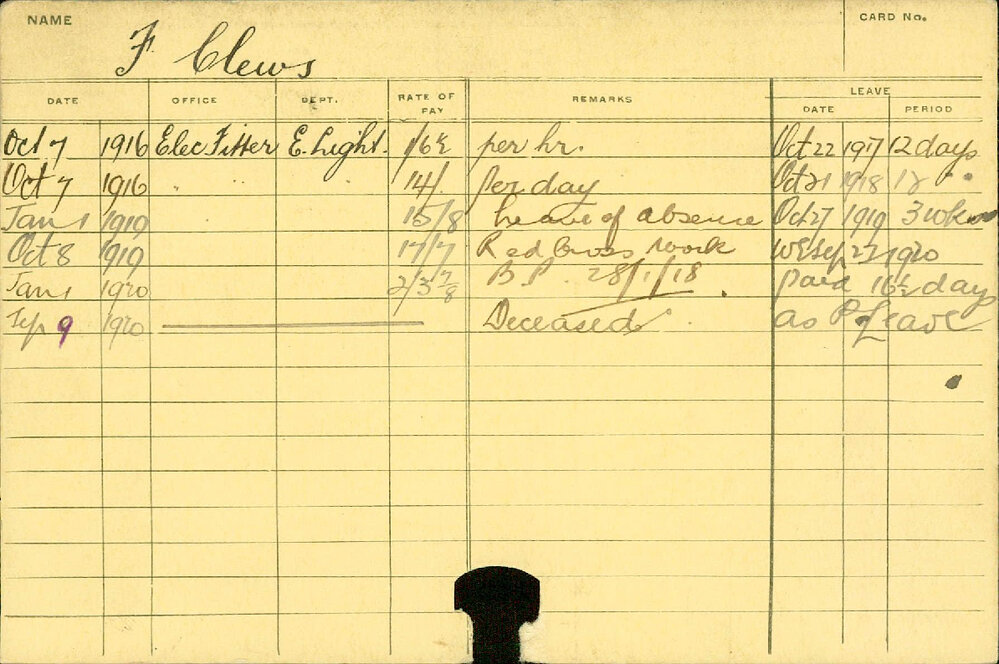 NAME
CARD No.
F Clews
DATE OFFICE DEPT. RATE OF PAY REMARKS LEAVE
DATE PERIOD
Oct 7 1916 Elec Fitter E. Light. 1/6½ per hr. Oct 22 1917 12 days
Oct 7 1916 " " 14/. per day Oct 21 1918 12 "
Jan 1 1919 15/8 Leave of absence Oct 27 1919 3 wks
Oct 8 1919 17/7 Red Cross Work WE Sep 22 1920
Jan 1 1920 B.P. 28/1/18 paid 16½ day
Sep 9 1920 Deceased as P. Leave